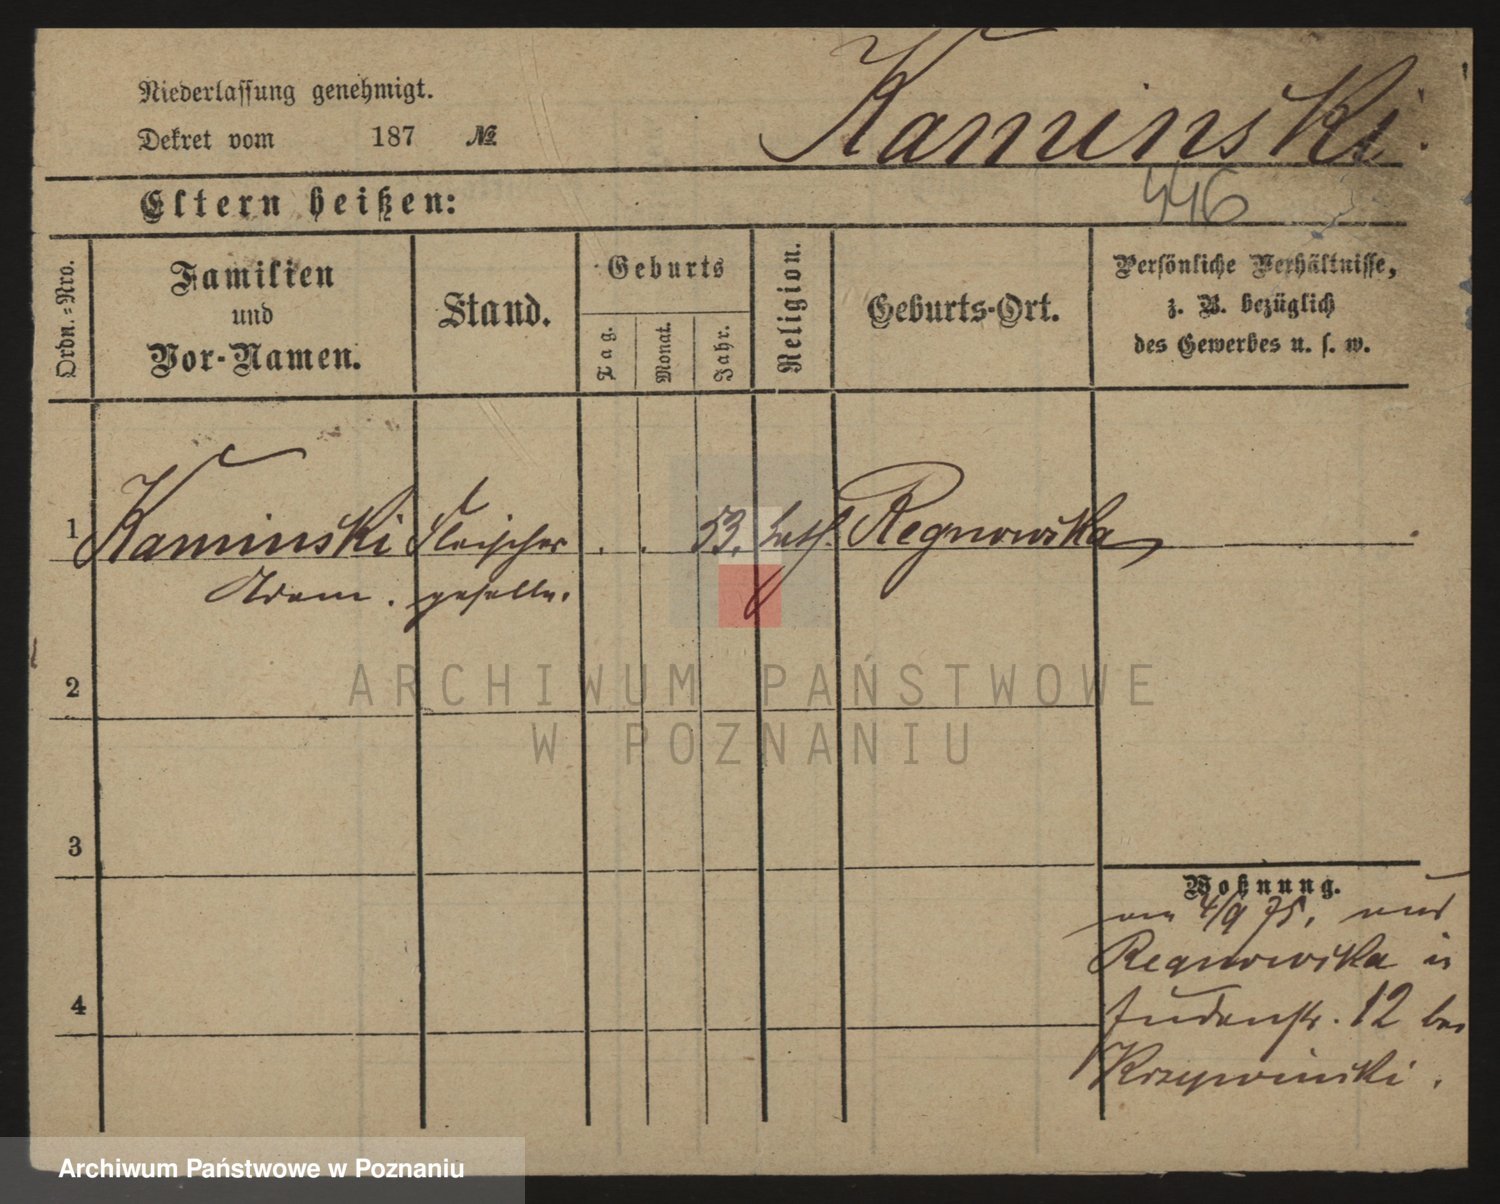 Niederlassung genehmigt.
Kaminski.
Dekret vom 187 №
446
Eltern heißen:
Ordn.-Nro.
Familien
und
Vor-Namen.
Stand.
Geburts
Tag.
Monat.
Jahr.
Religion.
Geburts-Ort.
Persönliche Verhältnisse,
z. B. bezüglich
des Gewerbes u. s. w.
1 Kaminski Fleischer . . 53. kath. Regnowska
Adam. geselle.
2
3
4
Wohnung.
am 4/9 75, aus
Regnowska in
Judenstr. 12 bei
Krzywinski.
ARCHIWUM PAŃSTWOWE
W POZNANIU
Archiwum Państwowe w Poznaniu